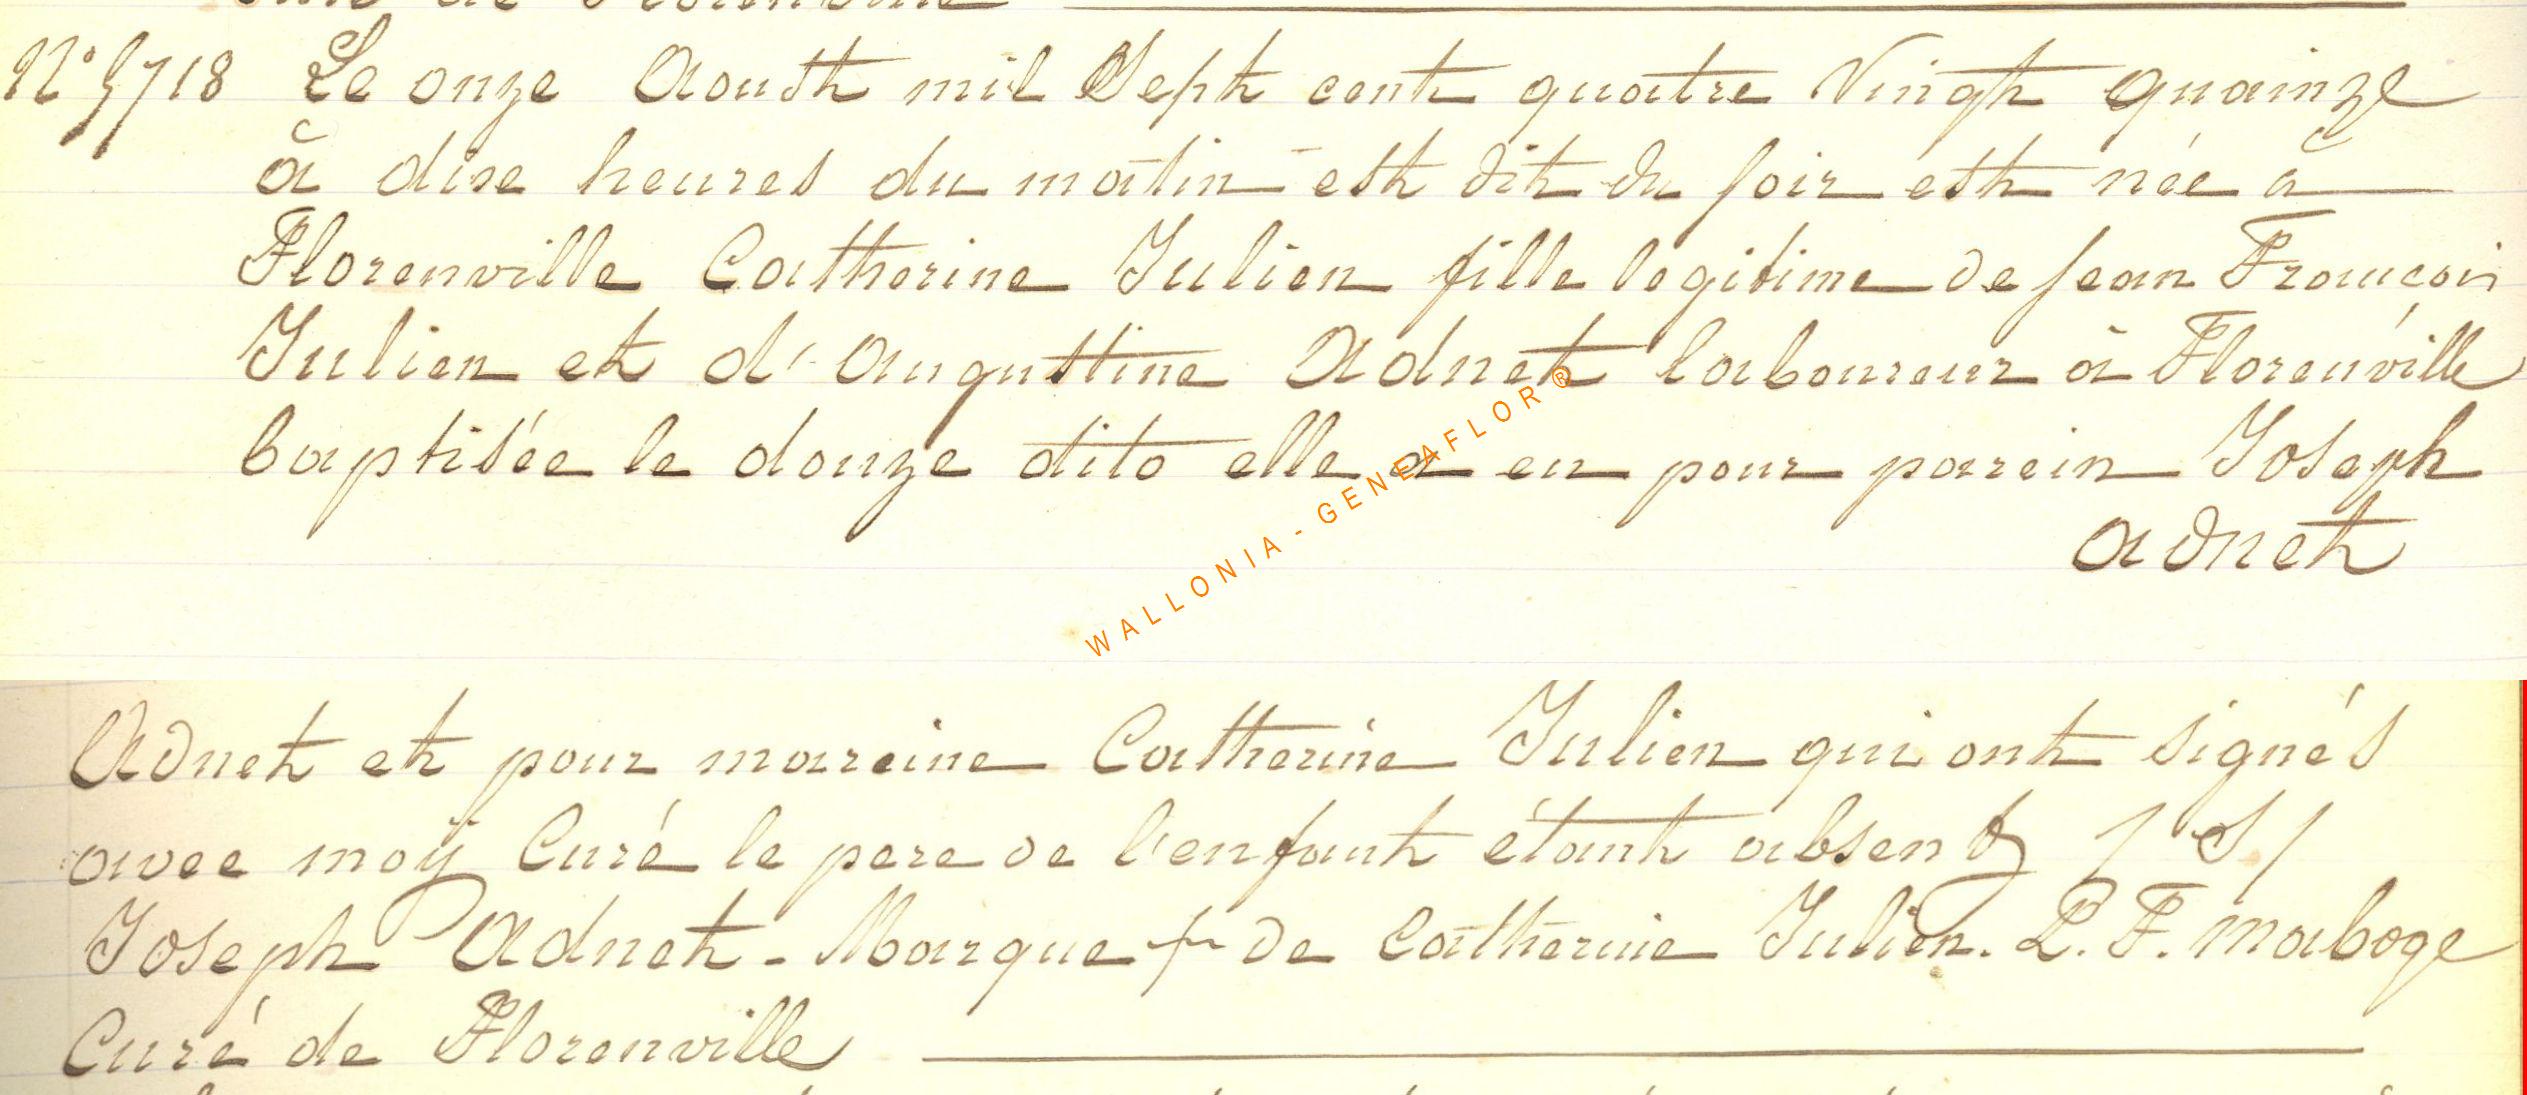 N° 5718 Le onze Aoust mil Sept cent quatre Vingt quainze
à dixe heures du matin est dit du soir est née à
Florenville Catherine Julien fille legitime de Jean Françcois
Julien et d'Augustine Adnet laboureur à Florenville
baptisée le douze dito elle a eu pour parein Joseph
Adnet
WALLONIA - GENEAFLOR®
Adnet et pour mareine Catherine Julien qui ont signés
avec moÿ Curé le pere de l'enfant étant absent / S /
Joseph Adnet - Marque + de Catherine Julien. L. F. Maboge
Curé de Florenville